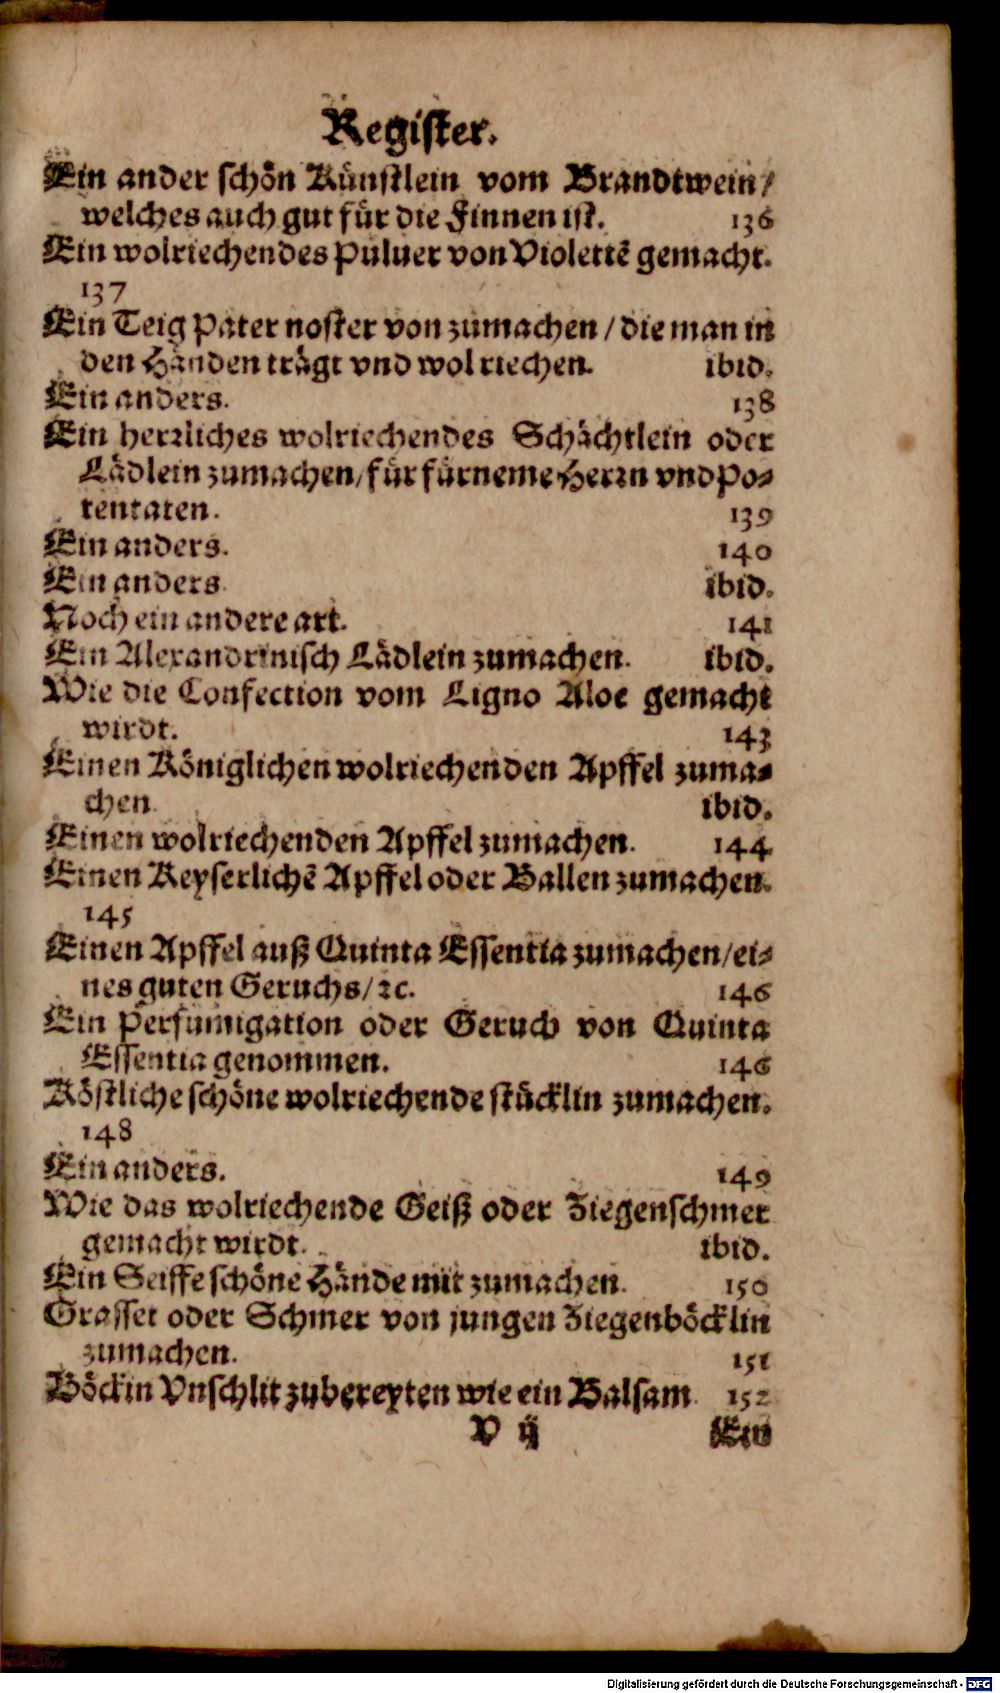 Register.
Ein ander schön Künstlein vom Brandtwein/
welches auch gut für die Finnen ist. 136
Ein wolriechendes Puluer von Violettẽ gemacht.
137
Ein Teig Pater noster von zumachen / die man in
den Händen trägt vnd wol riechen. ibid.
Ein anders. 138
Ein herꝛliches wolriechendes Schächtlein oder
Lädlein zumachen/ für fürneme Herꝛn vnd Po-
tentaten. 139
Ein anders. 140
Ein anders. ibid.
Noch ein andere art. 141
Ein Alexandrinisch Lädlein zumachen. ibid.
Wie die Confection vom Ligno Aloe gemacht
wirdt. 143
Einen Königlichen wolriechenden Apffel zuma-
chen. ibid.
Einen wolriechenden Apffel zumachen. 144
Einen Keyserlichẽ Apffel oder Ballen zumachen.
145
Einen Apffel auß Quinta Essentia zumachen/ ei-
nes guten Geruchs/ ꝛc. 146
Ein Perfumigation oder Geruch von Quinta
Essentia genommen. 146
Köstliche schöne wolriechende stücklin zumachen.
148
Ein anders. 149
Wie das wolriechende Geiß oder Ziegenschmer
gemacht wirdt. ibid.
Ein Seiffe schöne Hände mit zumachen. 150
Grasset oder Schmer von jungen Ziegenböcklin
zumachen. 151
Böckin Vnschlit zubereyten wie ein Balsam. 152
V ij Ein
Digitalisierung gefördert durch die Deutsche Forschungsgemeinschaft - DFG